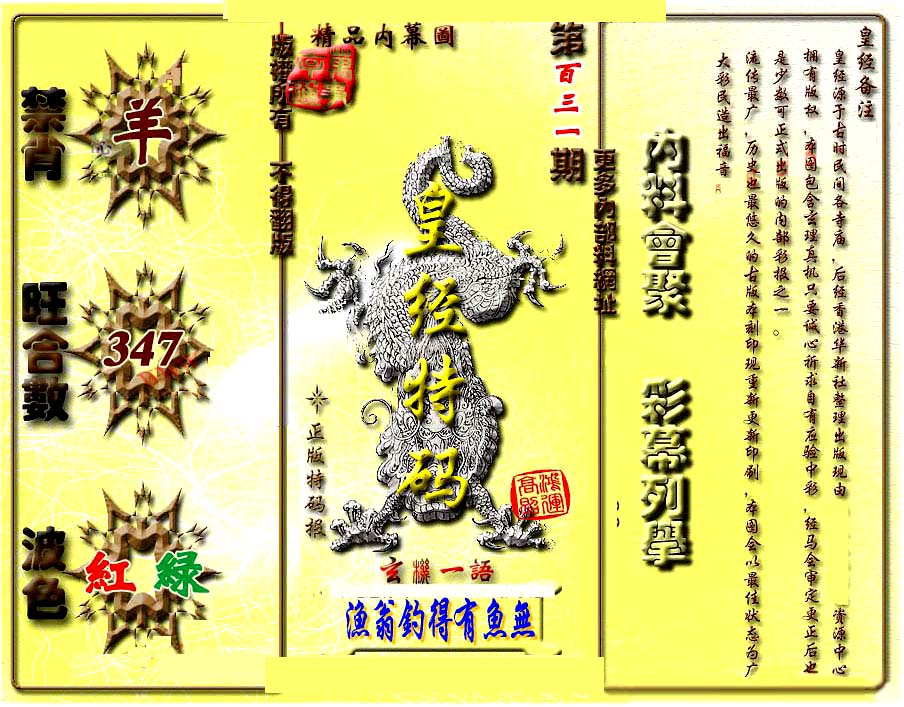 精品内幕圖
版權所有 不得翻版
第百三一期
更多内部料網址
禁肖
羊
旺合數
347
波色
紅 綠
皇经特码
正版特码报
鴻運高照
玄機一語
漁翁釣得有魚無
内料會聚
彩幕列舉
皇经备注
皇经源于古时民间各寺庙,后经香港华新社整理出版现由 资源中心
拥有版权,本图包含玄理真机只要诚心祈求自有应验中彩,经马会审定更正后也
是少数可正式出版的内部彩报之一。
流传最广,历史也最悠久的古版本刻印现重新更新印刷,本图会以最佳状态为广
大彩民造出福音